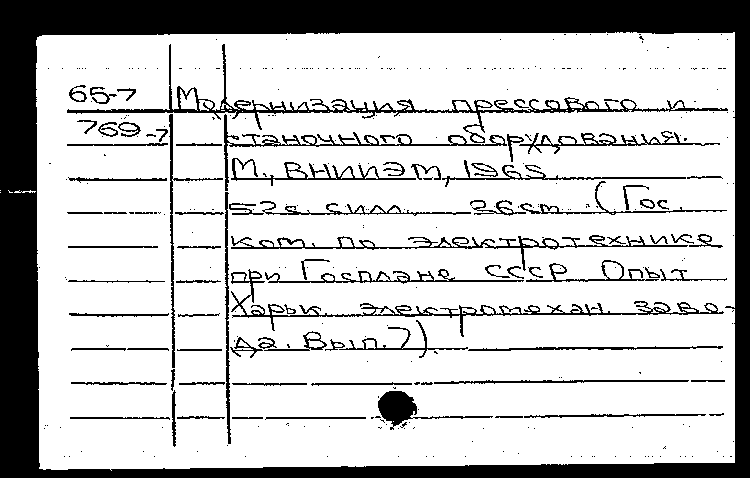 65-7 Модернизация прессового и
769-7 станочного оборудования.
М., ВНИИЭМ, 1965
52 с силл. 26 см. (Гос.
ком. по электротехнике
при Госплане СССР Опыт
Харьк. электромехан. заво-
да. Вып. 7).